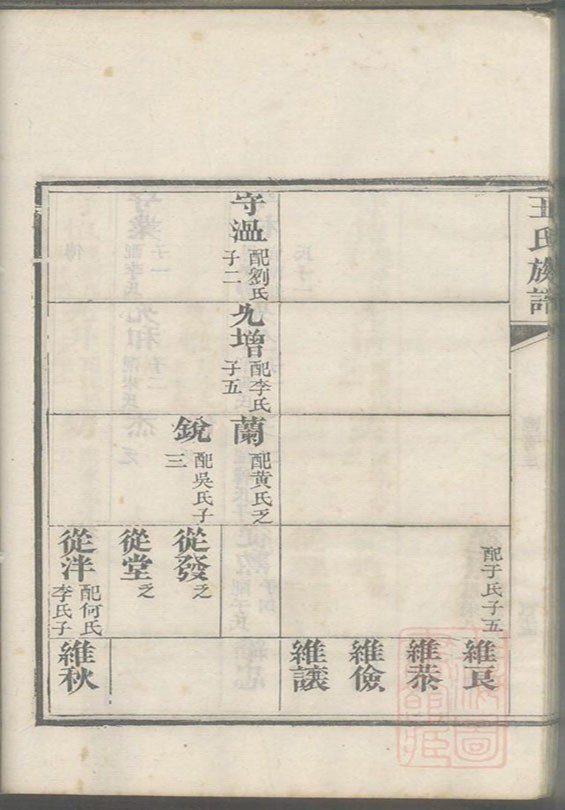 王氏族譜
守溫
配劉氏
子二
允增
配李氏
子五
蘭
配黃氏乏
銳
配吳氏子
三
配于氏子五
從發乏
從堂乏
從泮
配何氏
李氏子
維良
維恭
維儉
維議
維秋